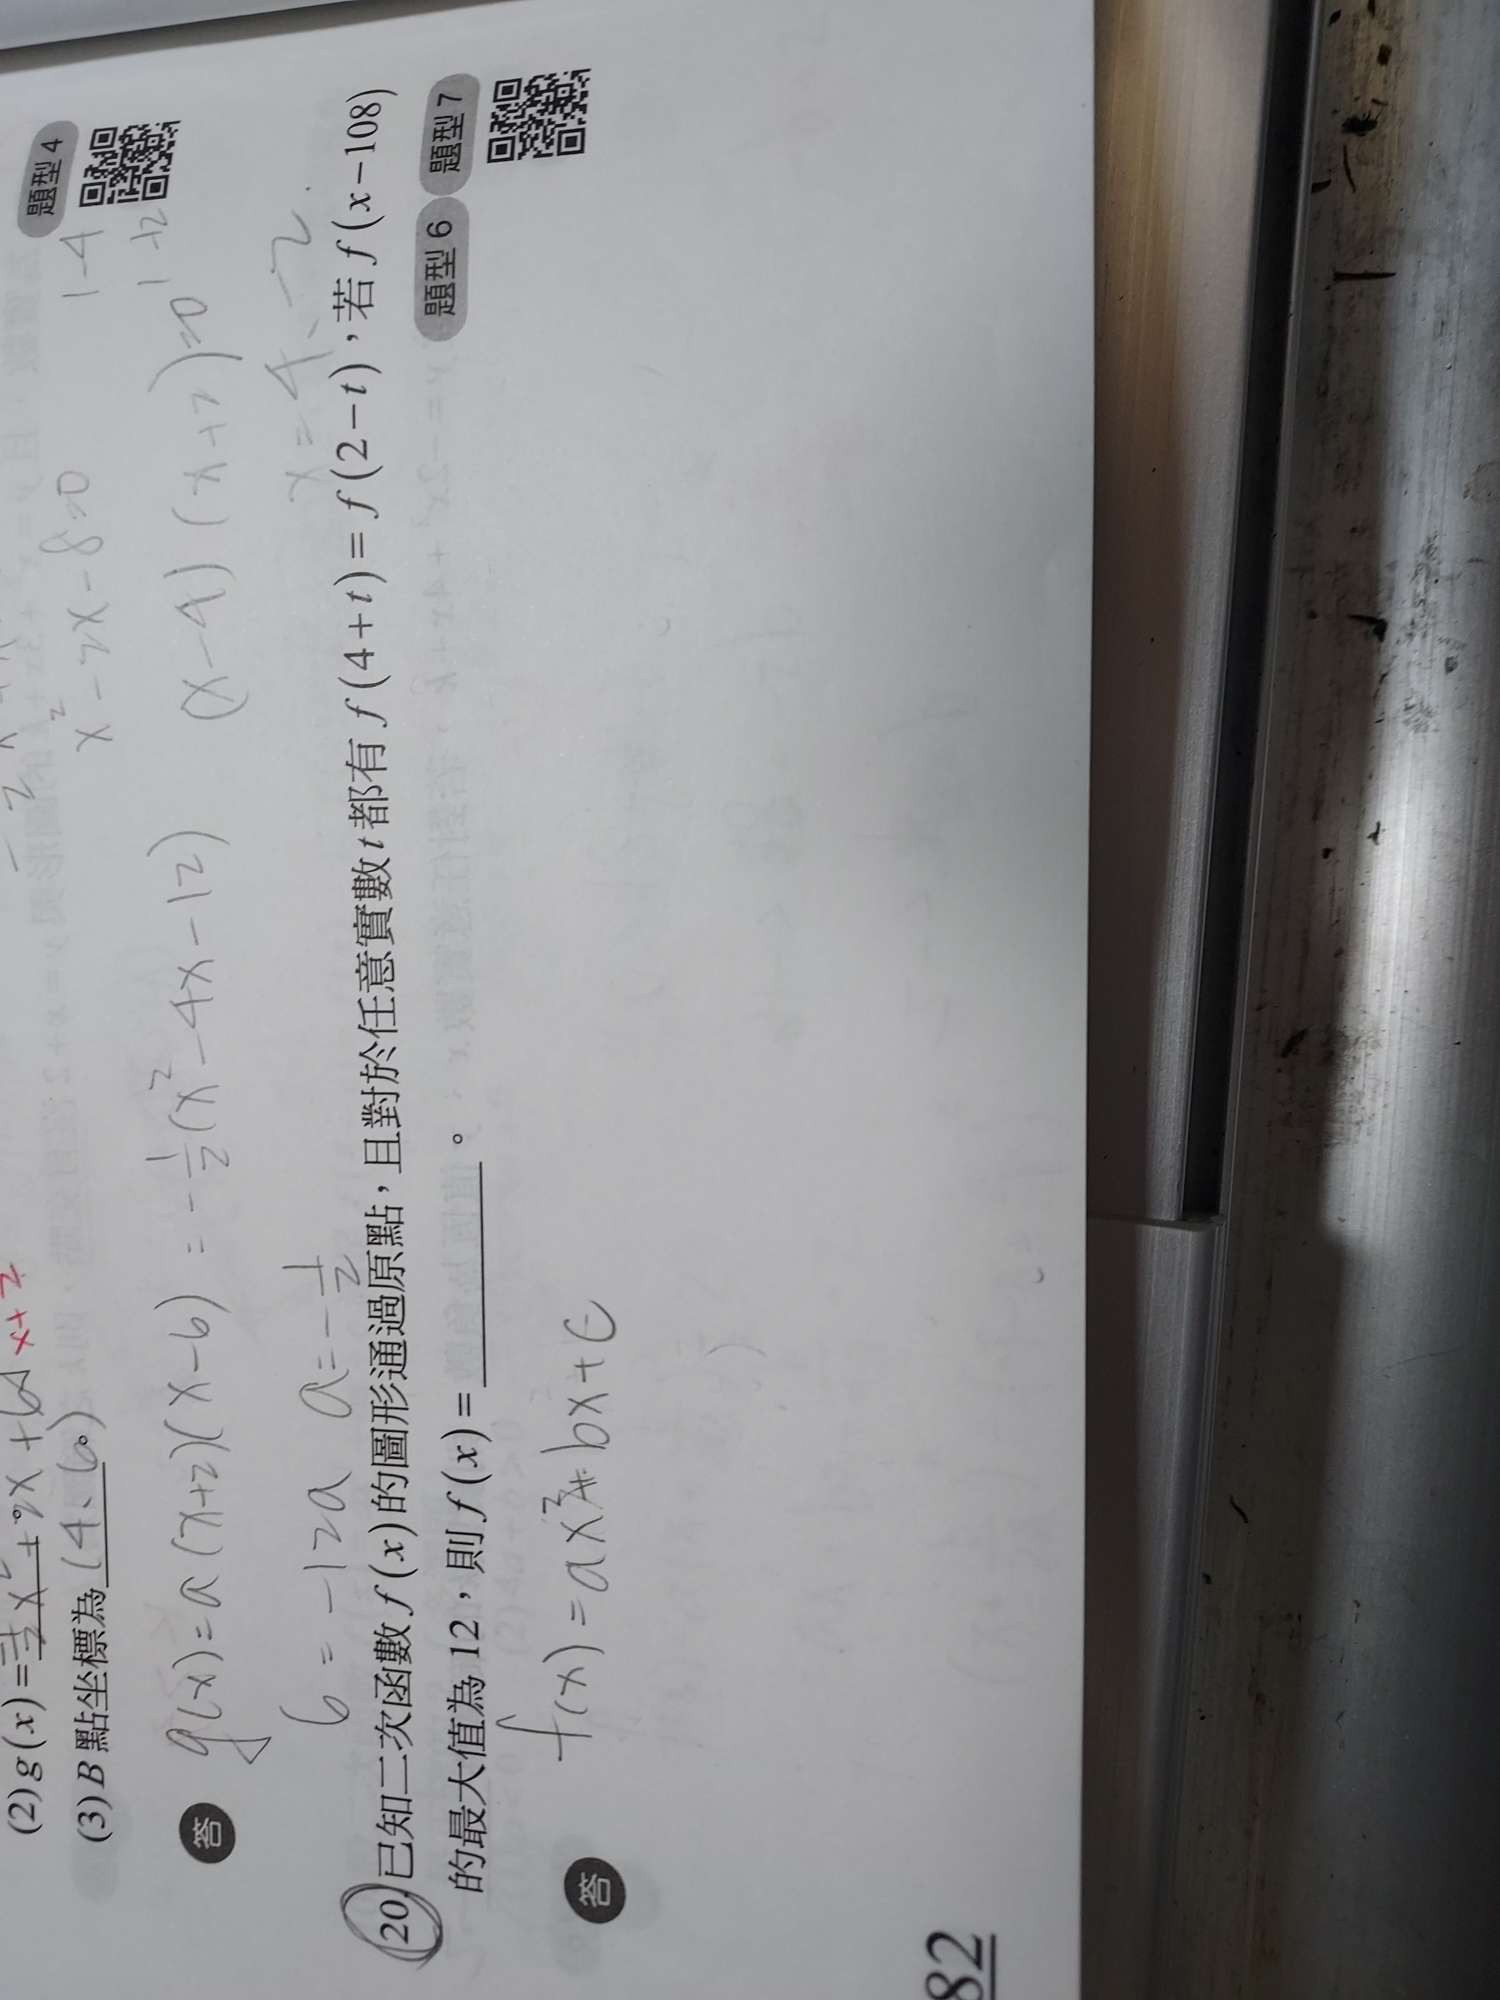 (2) g(x) = -1/2 x² + 2x + 6 x+2
題型 4
(3) B 點坐標為 (4、6)。
x² - 2x - 8 = 0
1 -4
1 +2
答
g(x) = a(x+2)(x-6) = -1/2 (x² - 4x - 12)
(x-4)(x+2) = 0
6 = -12a a = -1/2
x = 4、-2
20. 已知二次函數 f(x) 的圖形通過原點，且對於任意實數 t 都有 f(4+t) = f(2-t)，若 f(x-108)
的最大值為 12，則 f(x) = ________。
題型 6 題型 7
答
f(x) = ax² + bx + c
82